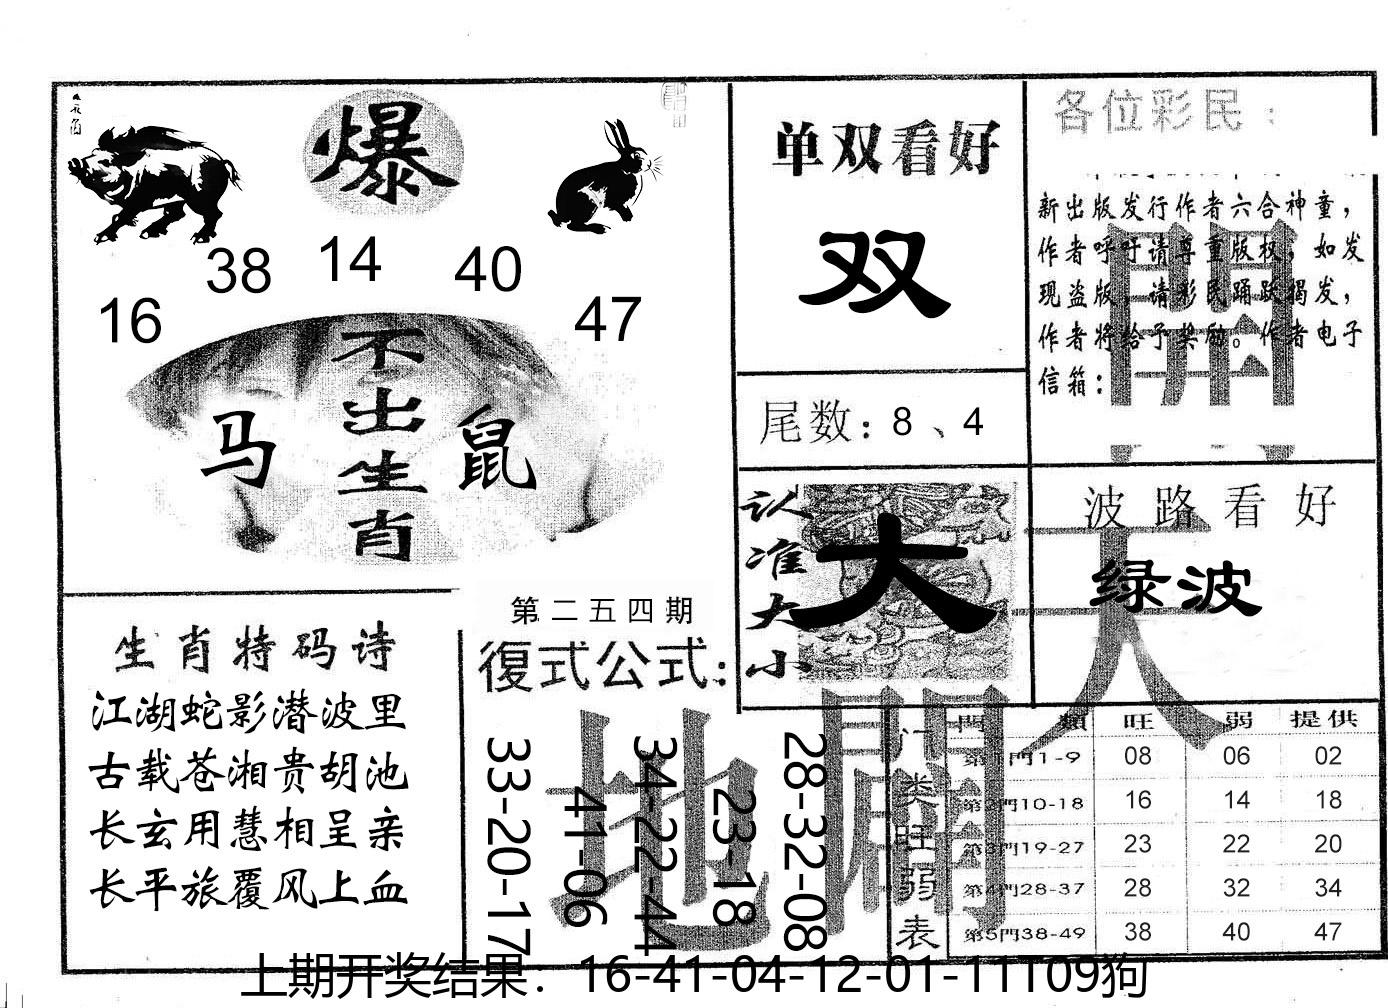 爆
38 14 40
16 47
不出生肖
马 鼠
单双看好
双
尾数：8、4
各位彩民：
新出版发行作者六合神童，
作者呼吁请尊重版权，如发
现盗版，请彩民踊跃揭发，
作者将给予奖励。作者电子
信箱：
開
认准大小
大
波路看好
绿波
天
生肖特码诗
江湖蛇影潜波里
古载苍湘贵胡池
长玄用慧相呈亲
长平旅覆风上血
第二五四期
復式公式：
33-20-17
41-06
34-22-44
23-18
28-32-08
地
門类旺弱表
門類 旺 弱 提供
第1門1-9 08 06 02
第2門10-18 16 14 18
第3門19-27 23 22 20
第4門28-37 28 32 34
第5門38-49 38 40 47
上期开奖结果：16-41-04-12-01-11T09狗